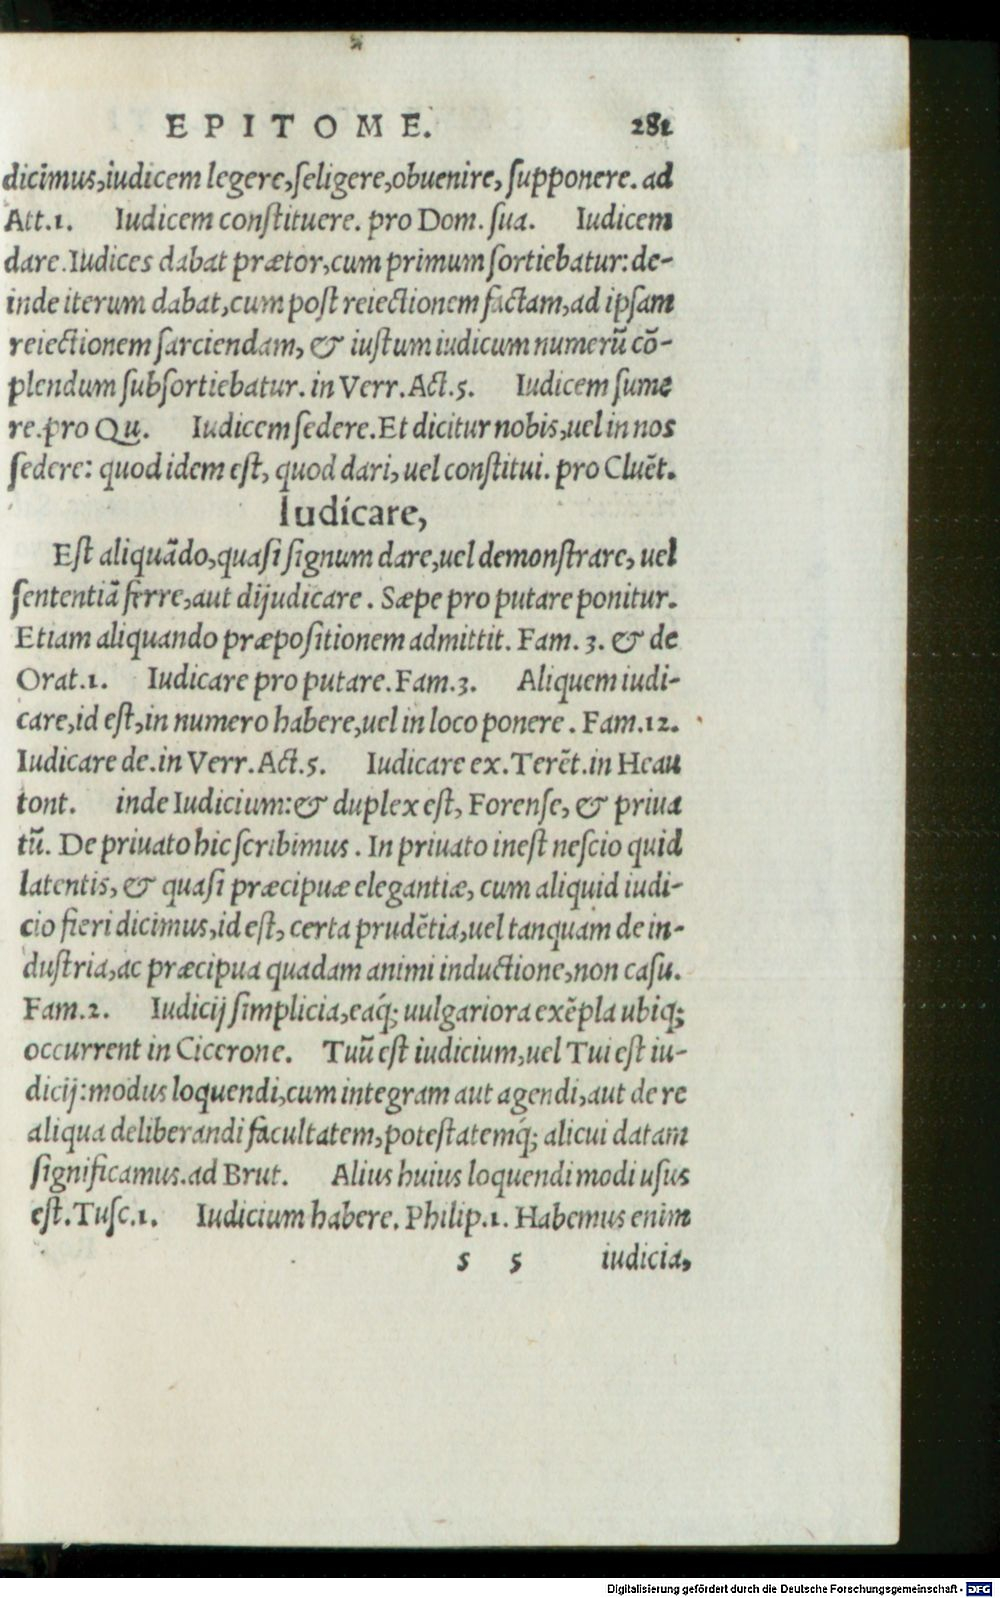 EPITOME. 281
dicimus,iudicem legere,ſeligere,obuenire, ſupponere. ad
Att.1. Iudicem conſtituere. pro Dom. ſua. Iudicem
dare.Iudices dabat prætor,cum primum ſortiebatur: de-
inde iterum dabat,cum poſt reiectionem factam,ad ipſam
reiectionem ſarciendam, & iuſtum iudicum numerū cō-
plendum ſubſortiebatur. in Verr.Act.5. Iudicem ſume
re.pro Qu. Iudicem ſedere.Et dicitur nobis,uel in nos
ſedere: quod idem eſt, quod dari, uel conſtitui. pro Cluēt.
Iudicare,
Eſt aliquādo,quaſi ſignum dare,uel demonſtrare, uel
ſententiā ferre,aut dijudicare. Sæpe pro putare ponitur.
Etiam aliquando præpoſitionem admittit. Fam. 3. & de
Orat.1. Iudicare pro putare.Fam.3. Aliquem iudi-
care,id eſt,in numero habere,uel in loco ponere. Fam.12.
Iudicare de.in Verr.Act.5. Iudicare ex.Terēt.in Heau
tont. inde Iudicium:& duplex eſt, Forenſe, & priua
tū. De priuato hic ſcribimus. In priuato ineſt neſcio quid
latentis, & quaſi præcipuæ elegantiæ, cum aliquid iudi-
cio fieri dicimus,id eſt, certa prudētia,uel tanquam de in-
duſtria,ac præcipua quadam animi inductione,non caſu.
Fam.2. Iudicij ſimplicia,eáq; uulgariora exēpla ubiq;
occurrent in Cicerone. Tuū eſt iudicium,uel Tui eſt iu-
dicij:modus loquendi,cum integram aut agendi,aut de re
aliqua deliberandi facultatem,poteſtatemq́; alicui datam
ſignificamus.ad Brut. Alius huius loquendi modi uſus
eſt.Tuſc.1. Iudicium habere. Philip.1. Habemus enim
s 5 iudicia,
Digitalisierung gefördert durch die Deutsche Forschungsgemeinschaft - DFG